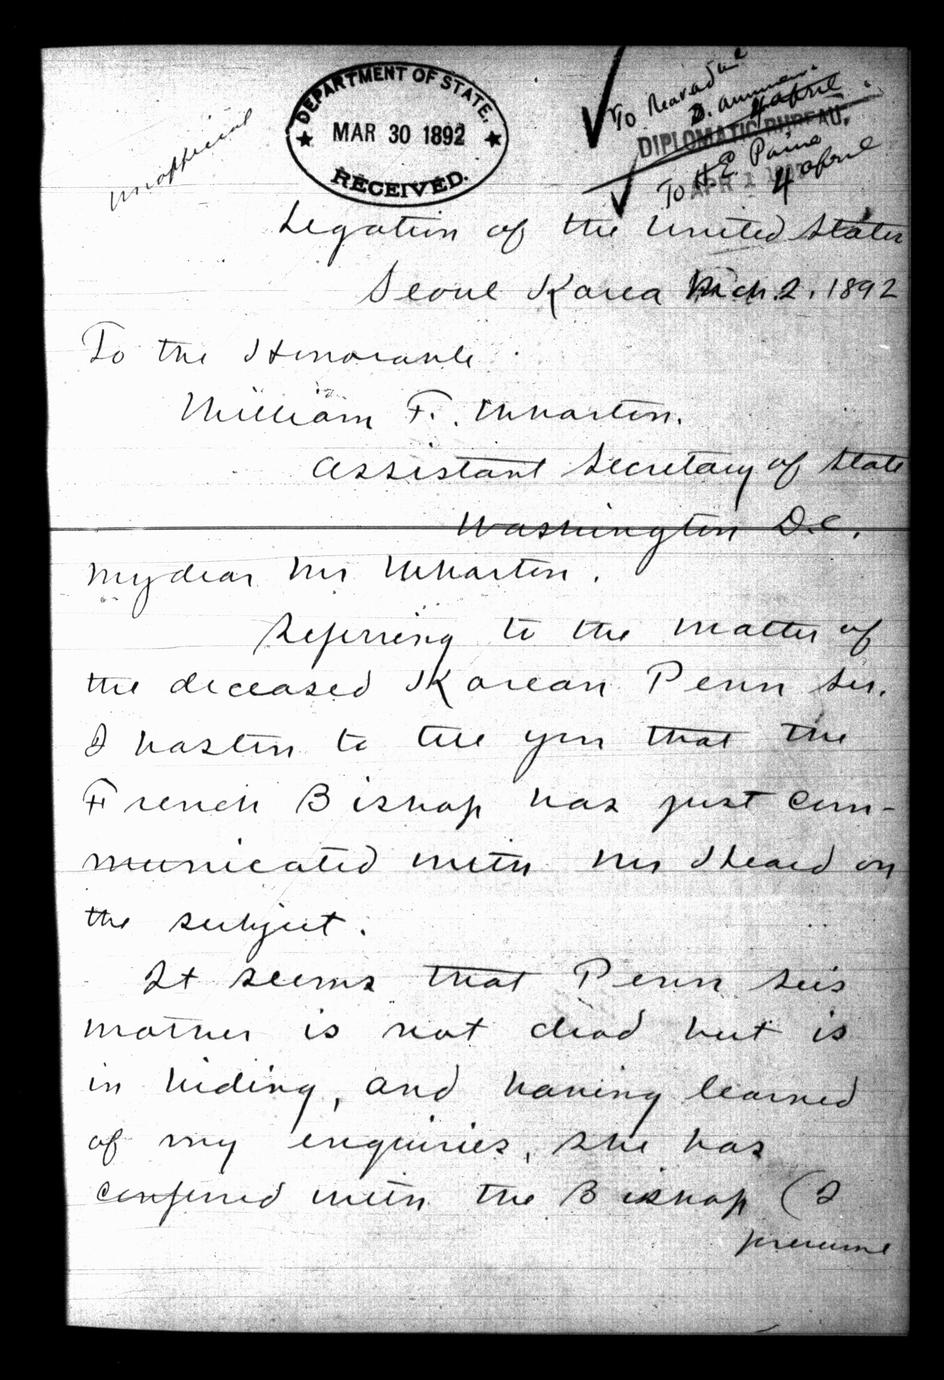 Unofficial
DEPARTMENT OF STATE,
MAR 30 1892
RECEIVED.
To Rear ad'ml
D. Ammen.
4 april
DIPLOMATIC BUREAU,
APR 1
To H. E. Paine
4 april
Legation of the United States
Seoul Korea Mch. 2. 1892
To the Honorable
William F. Wharton.
Assistant Secretary of State
Washington D.C.
My dear Mr Wharton.
Referring to the matter of
the deceased Korean Penn Su.
I hasten to tell you that the
French Bishop has just com-
municated with Mr Heard on
the subject.
It seems that Penn Su's
mother is not dead but is
in hiding, and having learned
of my enquiries, she has
conferred with the Bishop (I
presume